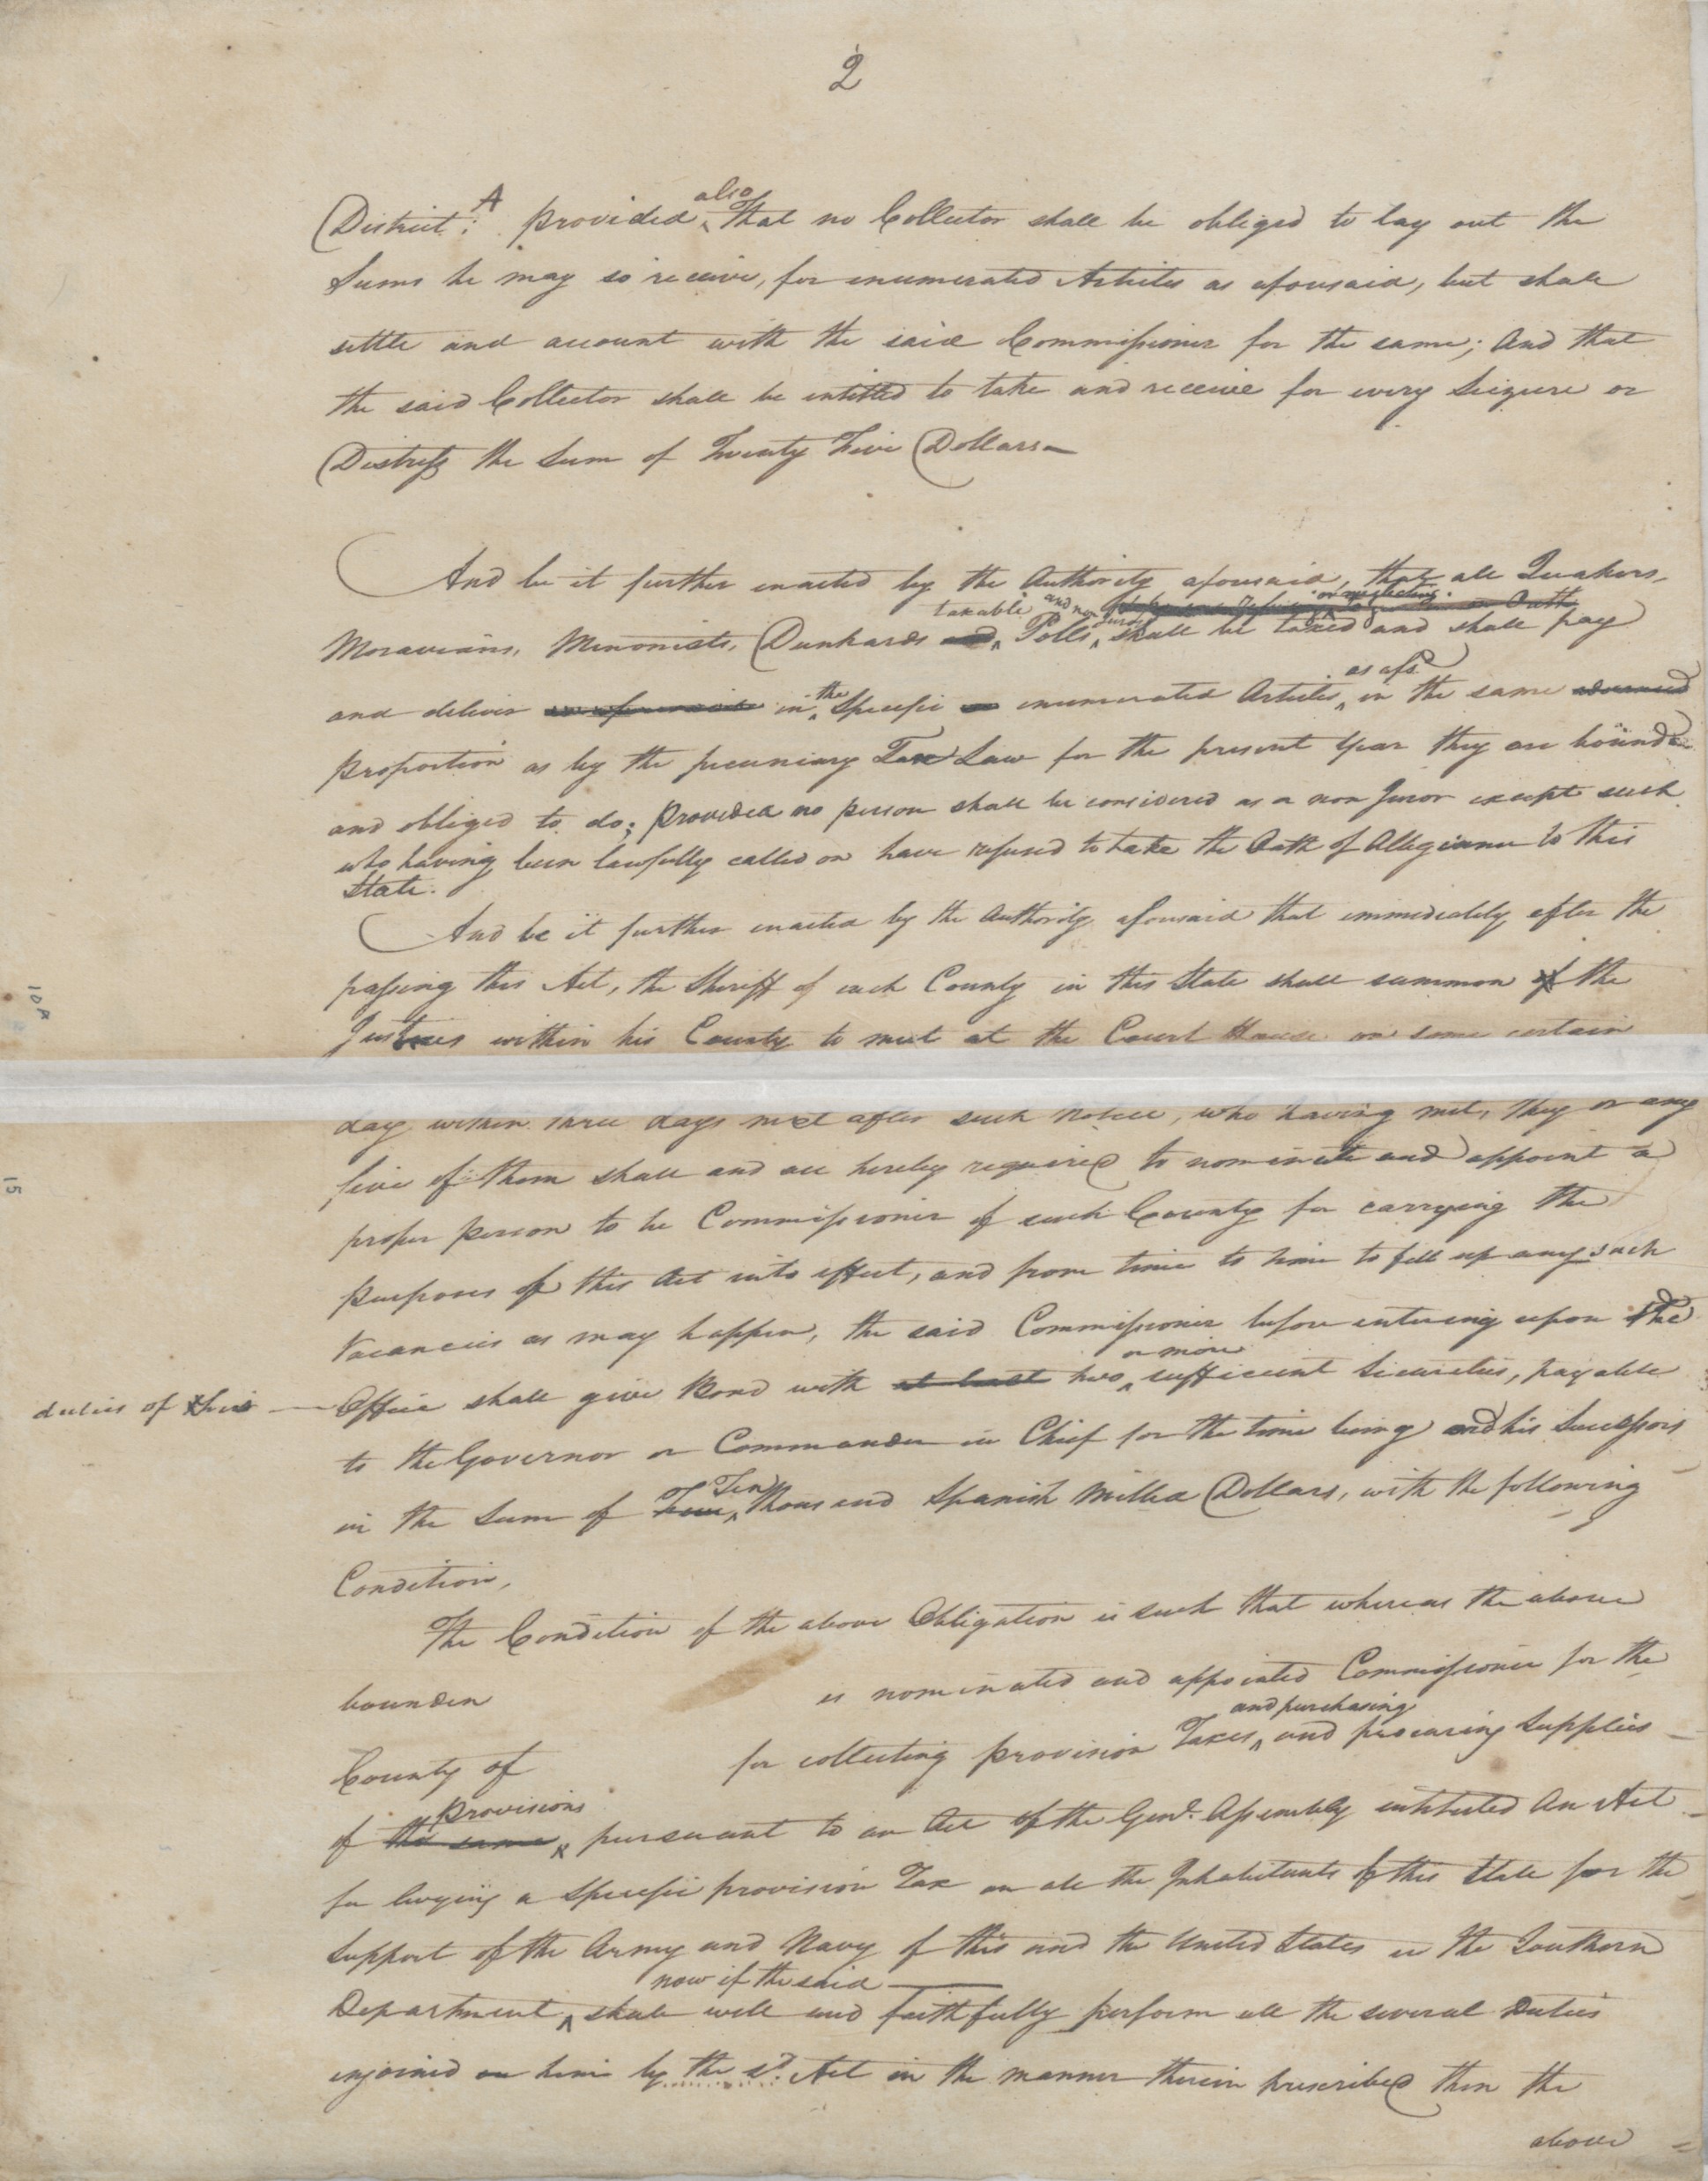 2
A
also
District: provided, That no Collector shall be obliged to lay out the
Sums he may so receive, for enumerated Articles as aforesaid, but shall
settle and account with the said Commissioner for the same; And that
the said Collector shall be intitled to take and receive for every Seizure or
Distress the Sum of Twenty Five Dollars
And be it further enacted by the Authority aforesaid, that all Quakers,
taxable and non Jurors or neglecting Oath
Moravians, Menonists, Dunkards and Polls, shall be taxed and shall pay
the as afsd
and deliver as aforesaid in Specific enumerated Articles in the same advanced
proportion as by the pecuniary Tax Law for the present Year they are bound
and obliged to do; Provided no person shall be considered as a non Juror except such
who having been lawfully called on have refused to take the Oath of Allegiance to this
State.
And be it further enacted by the Authority aforesaid that immediately after the
passing this Act, the Sheriff of each County in this State shall summon of the
Justices within his County to meet at the Court House on some certain
10A
day within three days next after such Notice, who having met, they or any
five of them shall and are hereby required to nominate and appoint a
15
proper person to be Commissioner of such County for carrying the
purposes of this Act into effect, and from time to time to fill up any such
Vacancies as may happen, the said Commissioner before entering upon the
or more
duties of this — Office shall give Bond with at least two sufficient Securities, payable
to the Governor or Commander in Chief for the time being and his Successors
Ten
in the Sum of Thousand Spanish Milled Dollars, with the following
Condition,
The Condition of the above Obligation is such that whereas the above
bounden is nominated and appointed Commissioner for the
and purchasing
County of for collecting provision Taxes, and procuring Supplies
Provisions
of the same pursuant to an Act of the Genl. Assembly intituled An Act
for levying a Specific provision Tax on all the Inhabitants of this State for the
Support of the Army and Navy of this and the United States in the Southern
now if the said
Department, shall well and faithfully perform all the several Duties
enjoined on him by the sd. Act in the manner therein prescribed then the
above